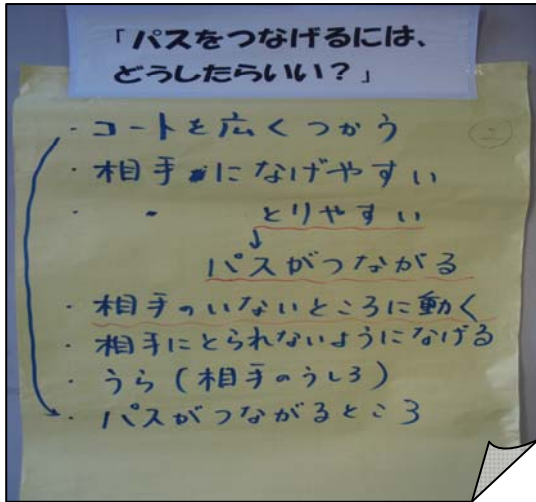 「パスをつなげるには、
どうしたらいい？」
・コートを広くつかう
・相手になげやすい
・　〃　とりやすい
↓
パスがつながる
・相手のいないところに動く
・相手にとられないようになげる
・うら(相手のうしろ)
・パスがつながるところ